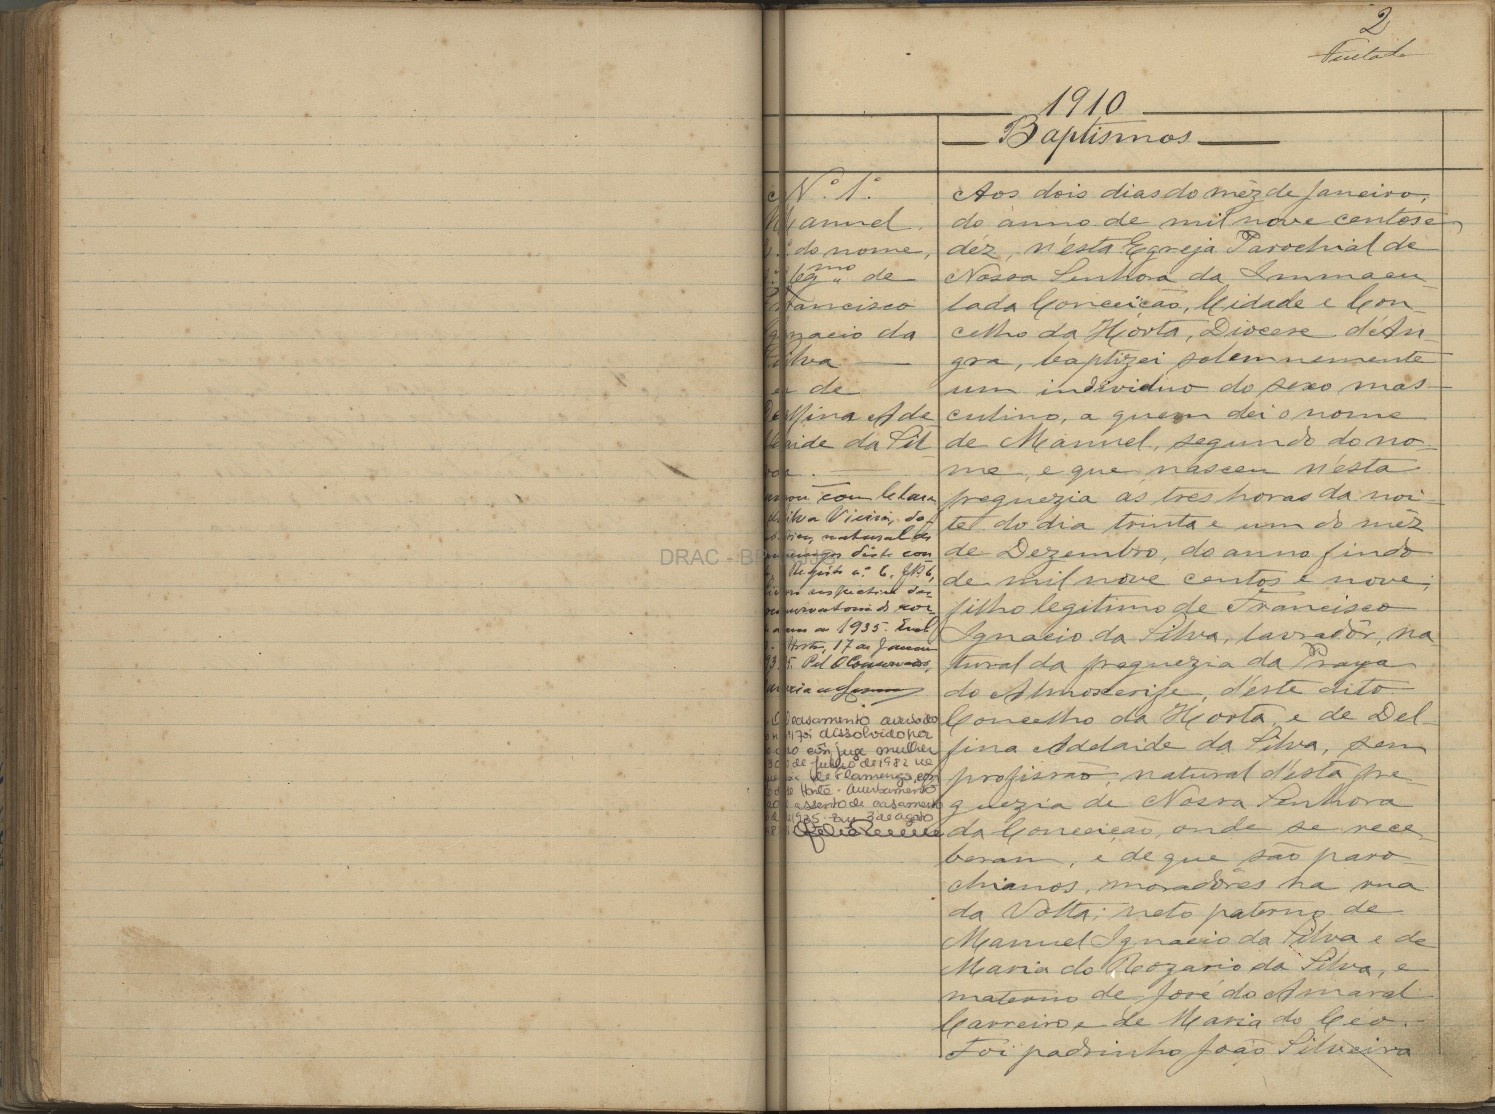 2
Furtado
1910
Baptismos
Nº 1º
Manuel
2º do nome,
legmo de
Francisco
Ignacio da
Silva
e de
Delfina Ade
laide da Sil
va.
com Clara
Silva Vieira, do
natural dos
Flamengos deste con
Registo nº 6, fls 6,
1935.
Horta, 17 de Janeiro
O casamento averbado
nº 1 foi dissolvido por
conjuge mulher
de Julho de 1982 na
de Flamengos, con
Horta. Averbamento
assento de casamento
1935. Em 3 de agosto
Aos dois dias do mêz de Janeiro,
do anno de mil nove centos e
déz, n'ésta Egreja Parochial de
Nossa Senhora da Immacu-
lada Conceição, Cidade e Con-
celho da Horta, Diocese d'An-
gra, baptizei solemnemente
um individuo do sexo mas-
culino, a quem dei o nome
de Manuel, segundo do no-
me, e que nasceu n'ésta
freguezia as tres horas da noi-
te do dia trinta e um do mêz
de Dezembro, do anno findo
de mil nove centos e nove;
filho legitimo de Francisco
Ignacio da Silva, lavradôr, na
tural da freguezia da Praya
do Almoxerife, d'éste dito
Concelho da Horta, e de Del-
fina Adelaide da Silva, sem
profissão, natural d'ésta fre-
guezia de Nossa Senhora
da Conceição, onde se rece-
beram, e de que são paro-
chianos, moradôres na rua
da Volta; neto paterno de
Manuel Ignacio da Silva e de
Maria do Rozario da Silva, e
materno de José do Amaral
Carreiro e de Maria do Céo.
Foi padrinho João Silveira
DRAC - B